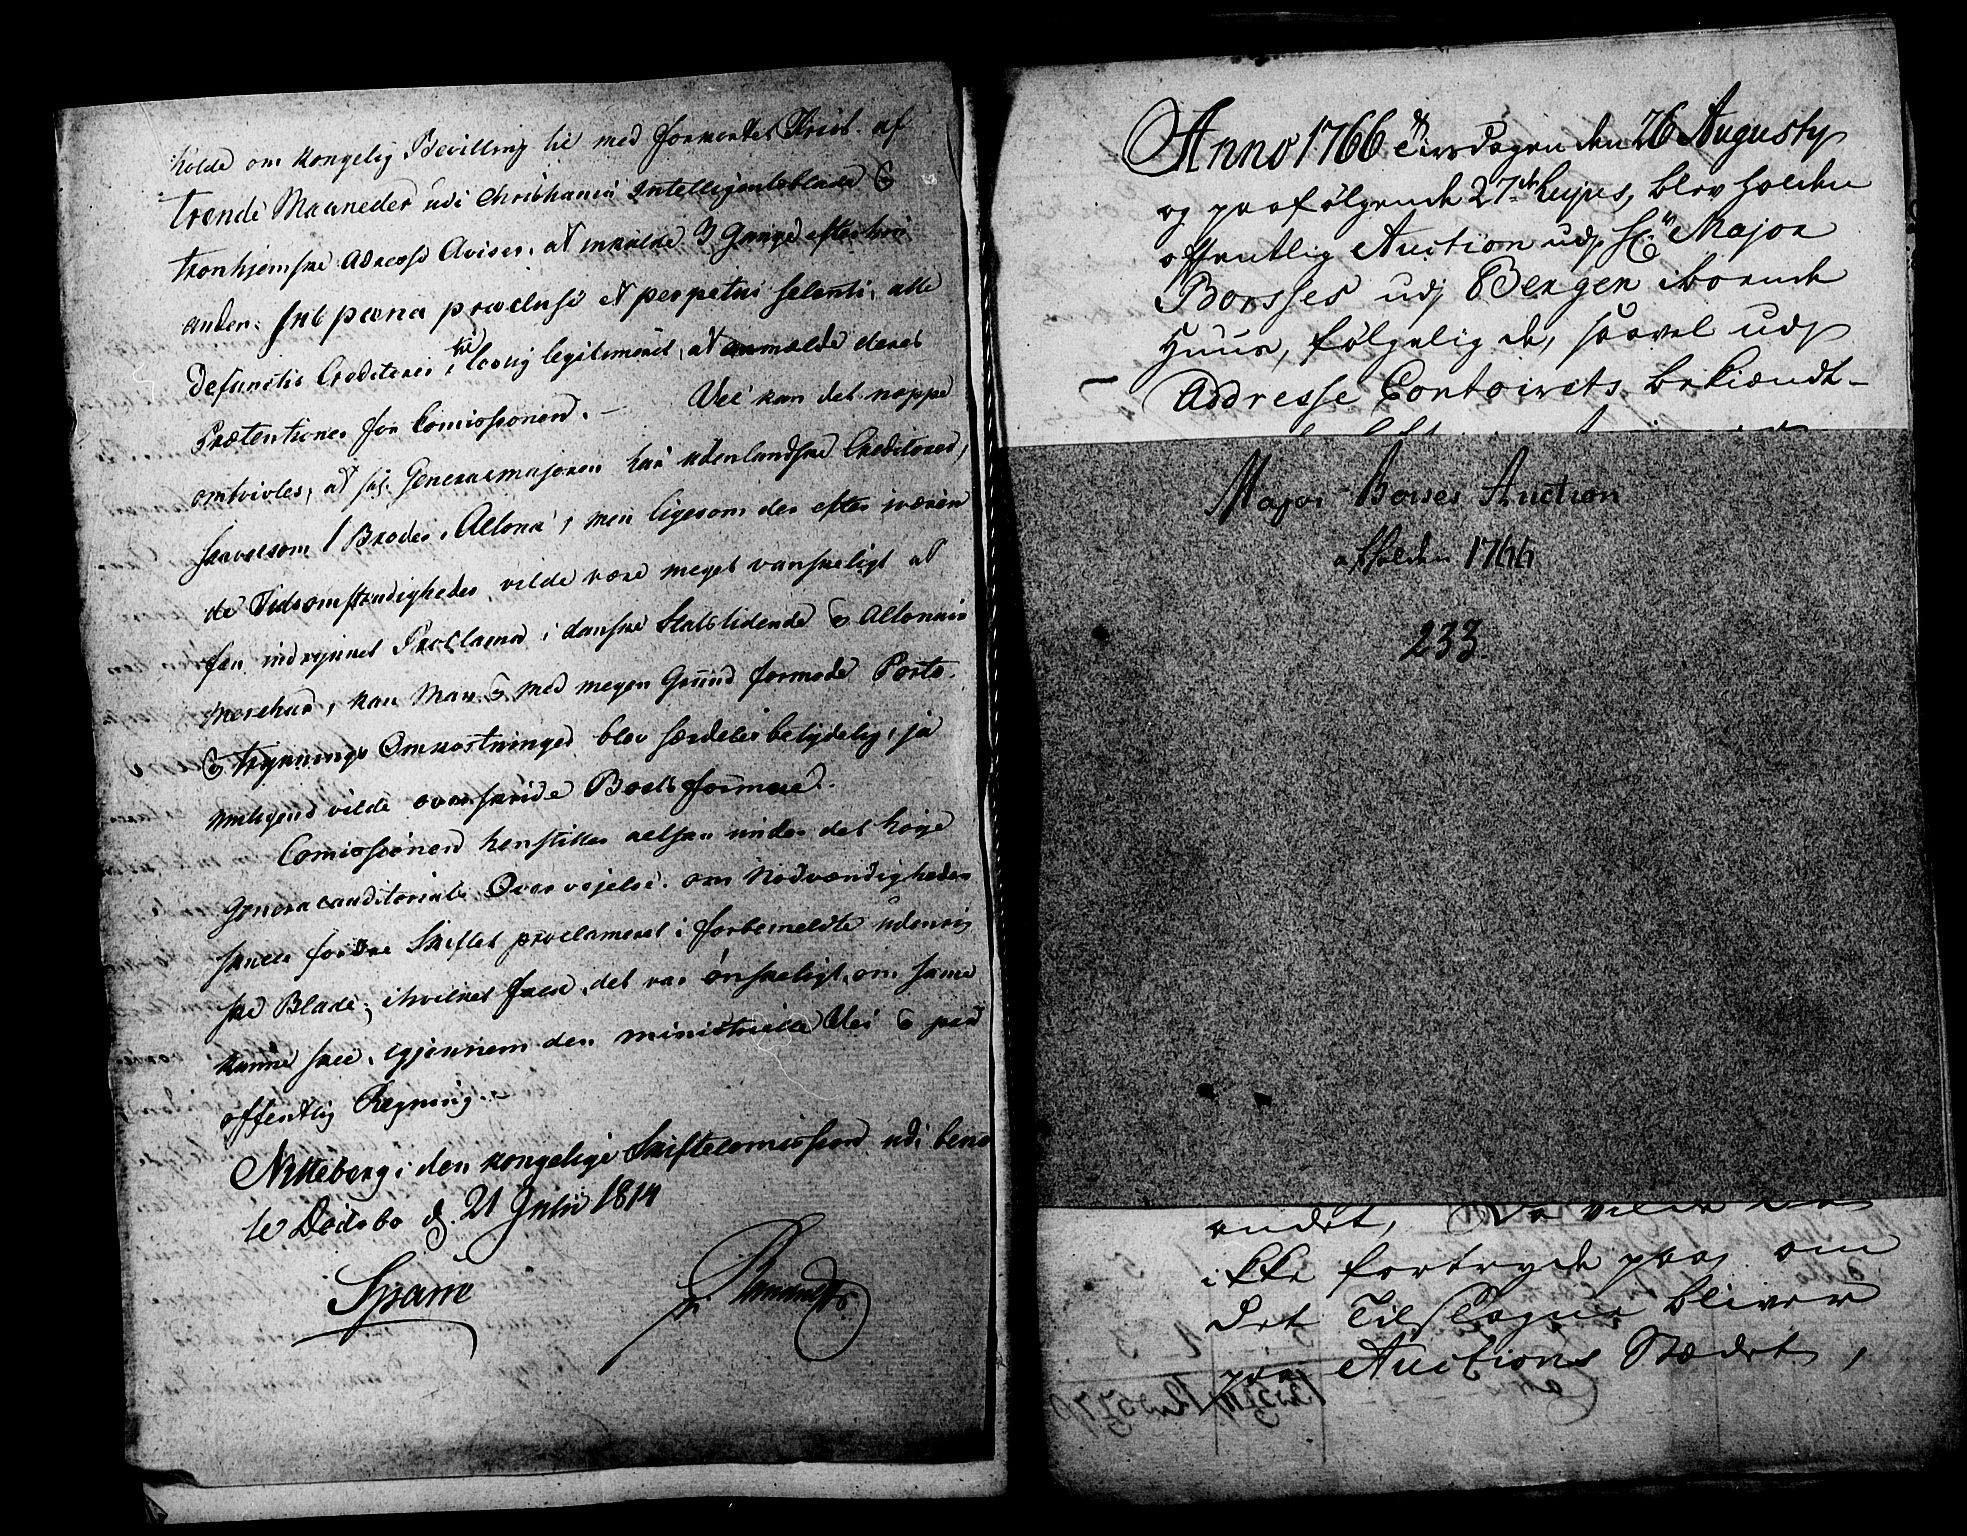 holde om kongelig Bevilling til med forkortet Frist af
trende Maaneder udi Christiania Intelligentsblade &
tronhjemske Adresse Aviser, at inkalde 3 Gange efter hin
anden, sub pæna præclusi et perpetui silentii, alle
defuncti Creditorer, til lovlig legitimeret, at anmælde deres
Prætentioner for Comissionen. – Vel kan det neppe
omtvivles, at sal. Generalmajoren har udenlandske Creditorer,
saavelsom 1 Broder i Altona, men ligesom det efter nærværen
de Tidsomstændigheder vilde være meget vanskeligt at
faa indrykket Proclama i danske Statstidende & Altonaer
Merchur, kan man & med megen Grund formode Porto
& trykningsomkostninger blev særdeles betydelig, ja
muligens vilde overskride Boets formue.
Comissionen henstiller altsaa under det høie
Generalauditoriats Overvejelse, om Nødvændigheden
skulle fordre Skiftet proclameret i forbemeldte udenrig
ske Blade, i hvilket Fald, det var ønskeligt, om samme
kunne skee, igjennem den ministerielle Vei & paa
offentlig Regning.
Nitteberg i den kongelige Skiftecomission udi bene
te Dødsbo d. 21 Julii 1814
Sparre
Anno 1766 Tirsdagen den 26 Augusty
og paafølgende 27de hujus, blev holden
offentlig Auction udj Hr Major
Borsses udj Bergen iboende
Huus, følgelig de, saavel udj
Addresse Contoirets bekiændt-
Major Borses Auction
afholden 1766
233.
andet, da vilde
ikke fortryde paa, om
det Tilslagne bliver
paa Auctions Stædet,